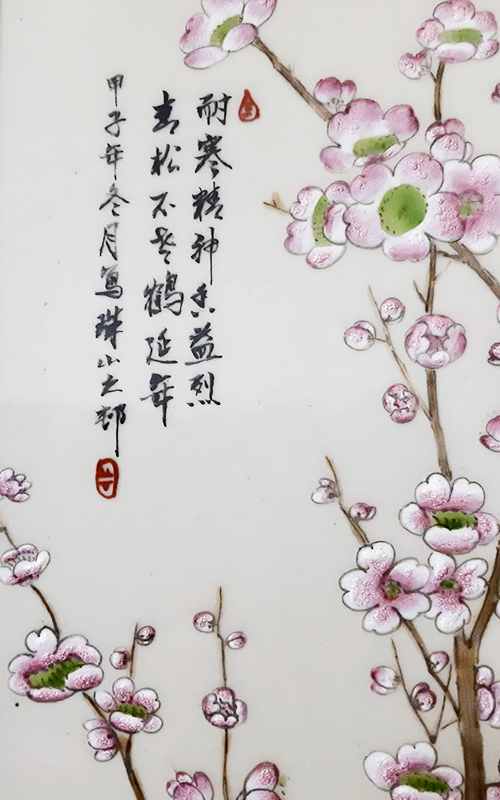 耐寒精神香益烈
青松不老鶴延年
甲子年冬月寫珠山之邨